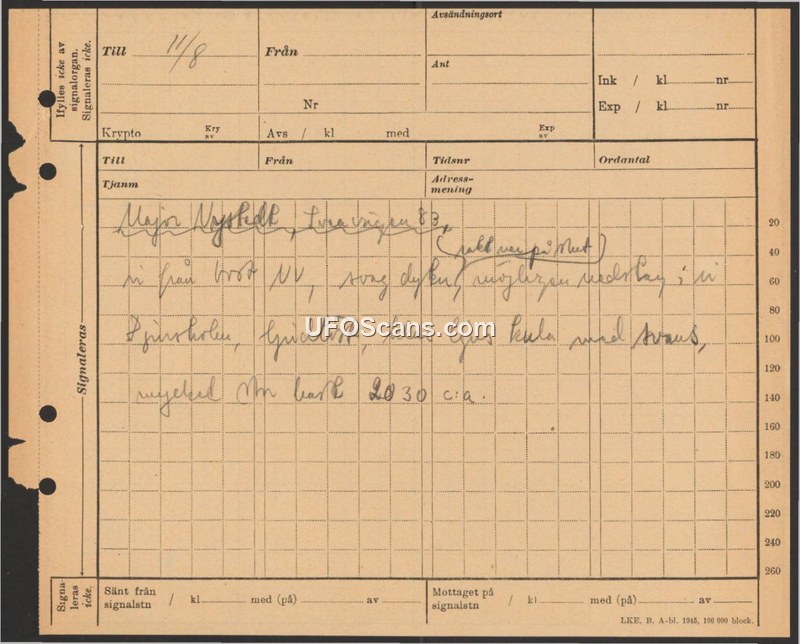 Ifylles icke av signalorgan. Signaleras icke.
Till 11/8
Från
Avsändningsort
Ant
Nr
Ink / kl nr
Exp / kl nr
Krypto
Kry av
Avs / kl med
Exp av
Till
Från
Tidsnr
Ordantal
Tjanm
Adress-
mening
Signaleras
Major Nystedt, Sveavägen 83,
(rakt ner på slut)
från NV, svag dykn, möjligen nedslag i
Djursholm, ljudlöst, ljus kula med svans,
mycket stor hast 2030 c:a.
20
40
60
80
100
120
140
160
180
200
220
240
260
UFOScans.com
Signa-
leras
icke.
Sänt från
signalstn / kl med (på) av
Mottaget på
signalstn / kl med (på) av
LKE, B. A-bl. 1945, 100 000 block.